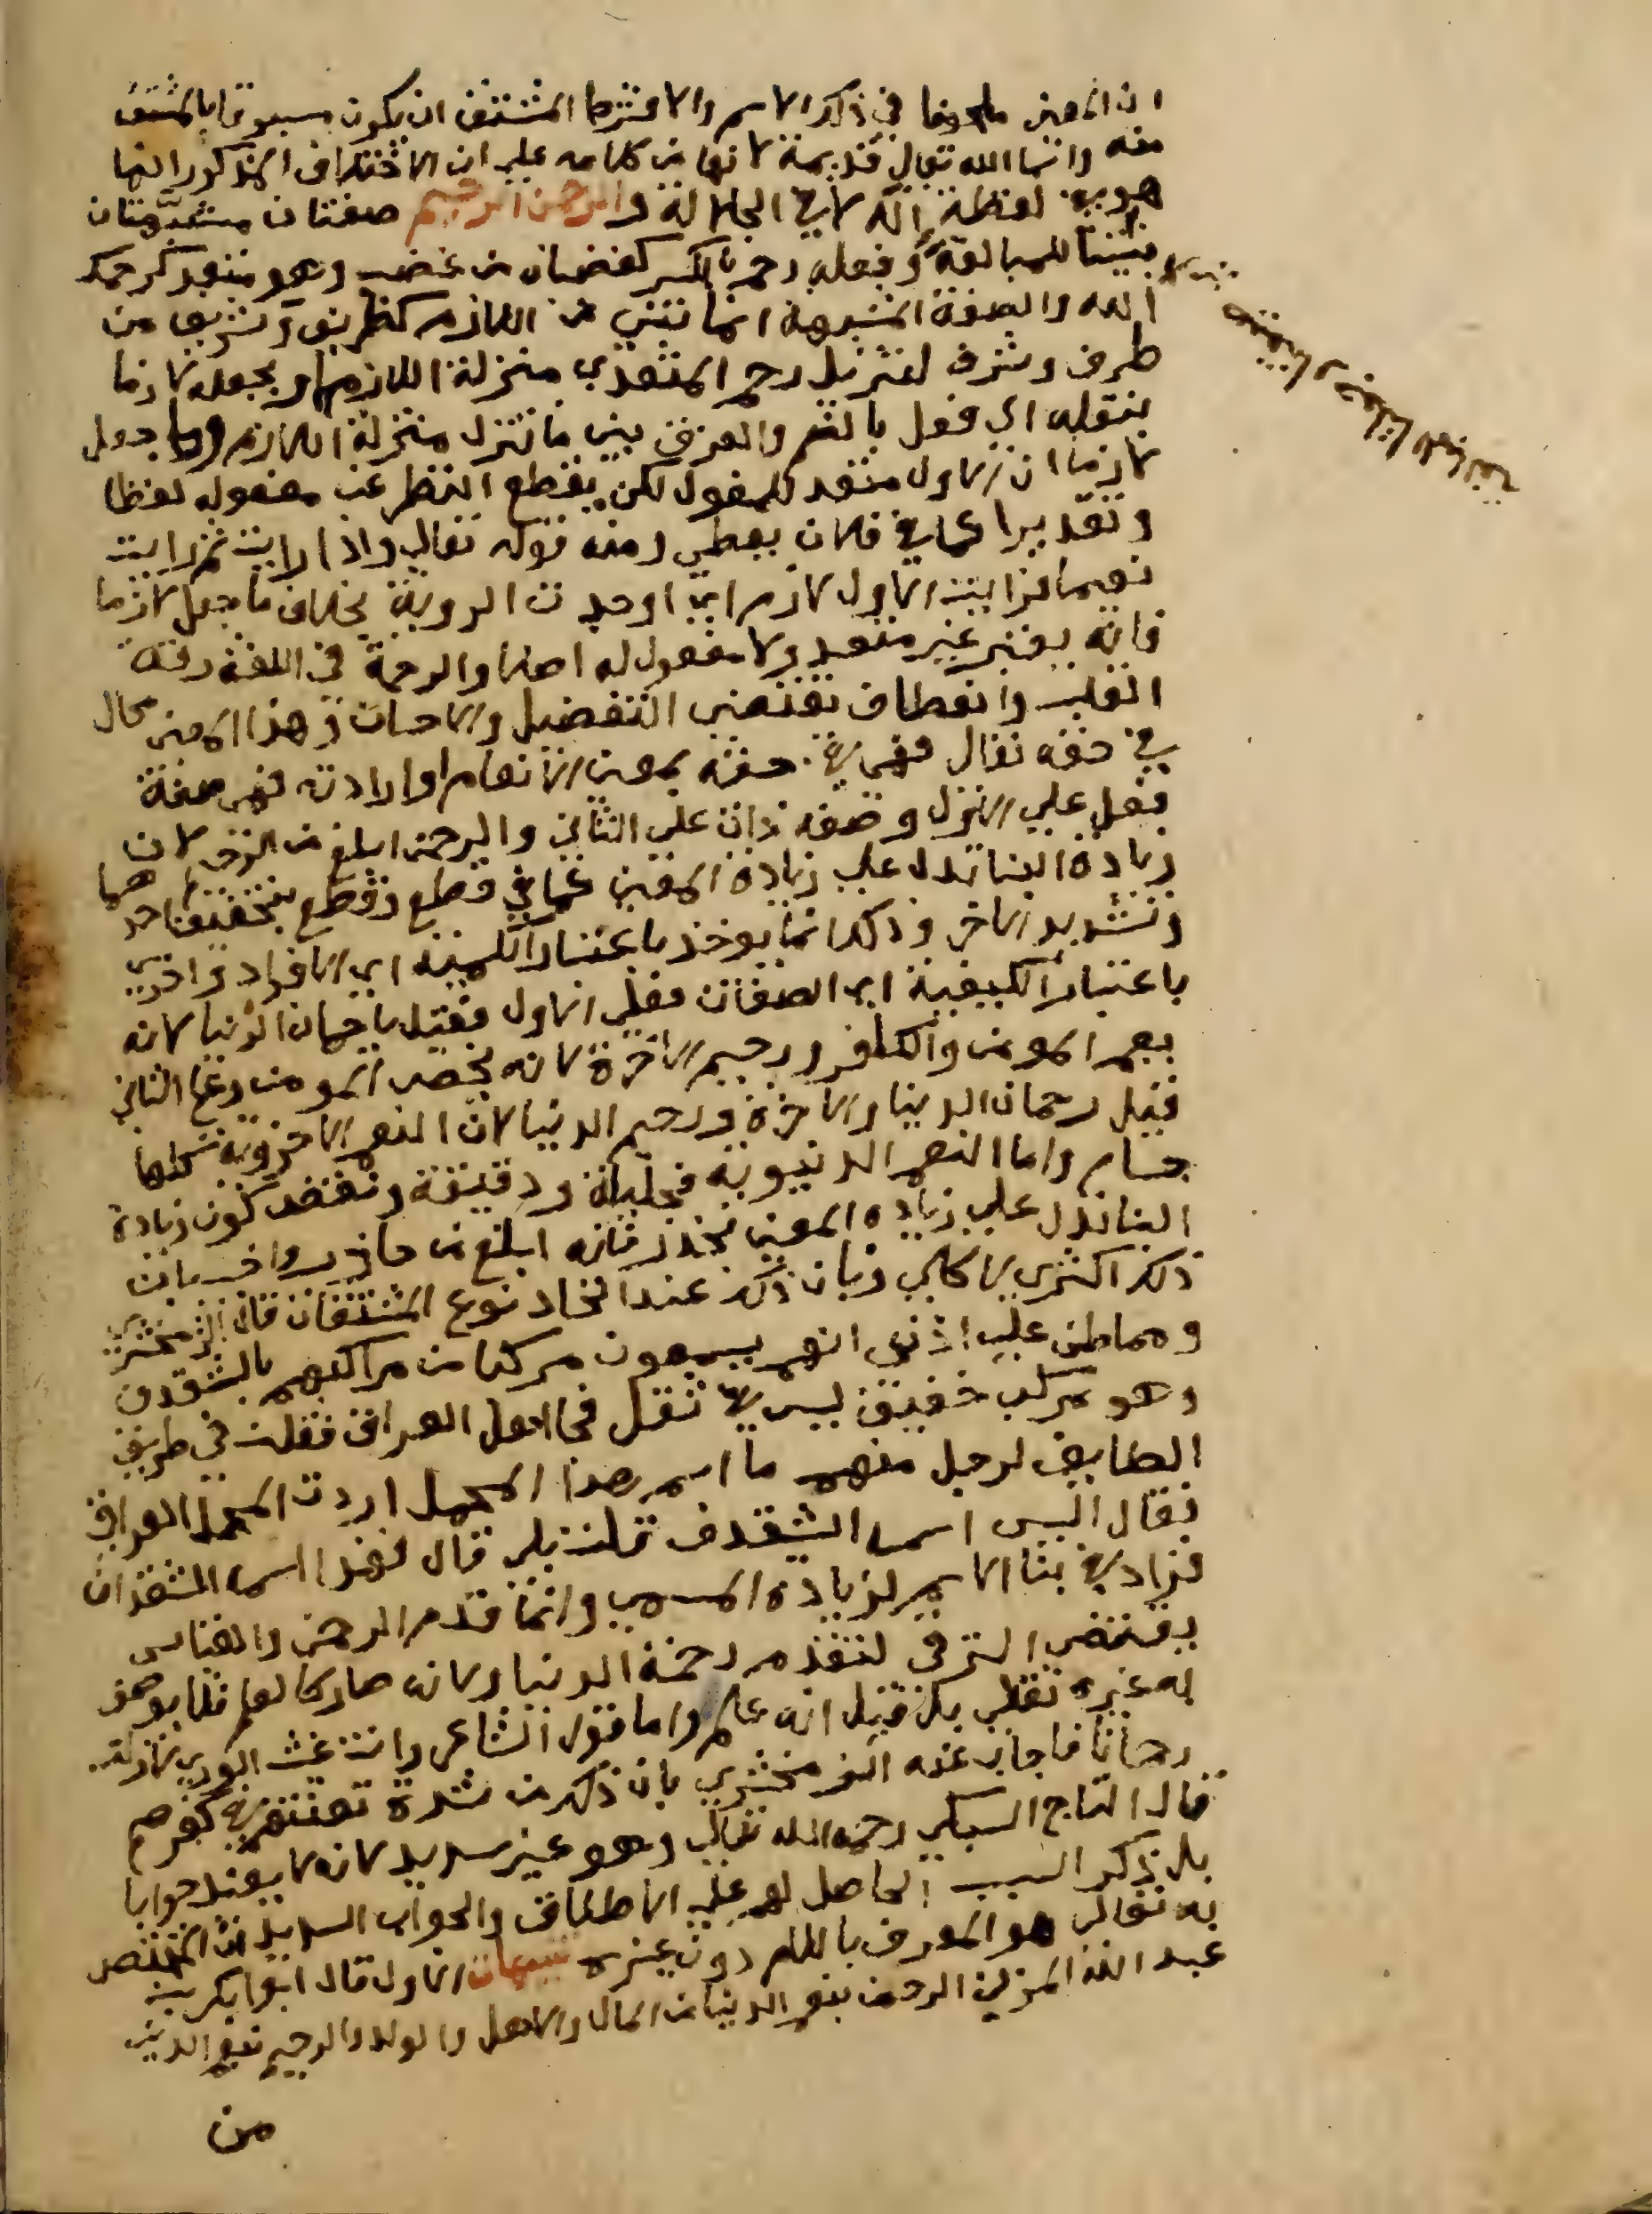 ان المعنى ملحوظ في ذلك الاسم والا فشرط المشتق ان يكون مسبوقا بالمشتق
منه واسما الله تعالى قديمة لانها من كلامه على ان الاختلاف المذكور انما
هو في لفظة اله لا في الجلالة والرحمن الرحيم صفتان مشبهتان
بنيتا للمبالغة وفعله رحم بالكسر كغضبان من غضب وهو متعد كرحمك
الله والصفة المشبهة انما تبنى من اللازم كظريف وشريف من
ظرف وشرف لتنزيل رحم المتعدي منزلة اللازم او بجعله لازما
بنقله الى فعل بالضم والفرق بين ما نزل منزلة اللازم وما جعل
لازما ان الاول متعد للمفعول لكن يقطع النظر عن مفعوله لفظا
وتقديرا كما في فلان يعطي ومنه قوله تعالى واذا رايت ثم رايت
نعيما فرايت الاول لازم اي اوجدت الروية بخلاف ما جعل لازما
فانه يصير غير متعد ولا مفعول له اصلا والرحمة في اللغة رقة
القلب وانعطاف تقتضي التفضيل والاحسان وهذا المعنى محال
في حقه تعالى فهي في حقه بمعنى الانعام او ارادته فهي صفة
فعل على الاول وصفة ذات على الثاني والرحمن ابلغ من الرحيم لان
زيادة البنا تدل على زيادة المعنى كما في قطع وقطع بتخفيف احدهما
وتشديد الاخر وذلك انما يوخذ باعتبار الكمية اي الافراد واخرى
باعتبار الكيفية اي الصفات فعلى الاول فقيل يا رحمان الدنيا لانه
يعم المومن والكافر ورحيم الاخرة لانه يخص المومن وعلى الثاني
فقيل رحمان الدنيا والاخرة ورحيم الدنيا لان النعم الاخروية كلها
جسام واما النعم الدنيوية فجليلة ودقيقة ونقض كون زيادة
البنا تدل على زيادة المعنى بحذر فانه ابلغ من حاذر واجيب بان
ذلك اكثري لا كلي وبان ذلك عند اتحاد نوع المشتقات قال الزمخشري
ومما طن على اذني انهم يسمون مركبا من مراكبهم بالشقدف
وهو مركب خفيف ليس في ثقل محامل العراق فقلت في طريق
الطايف لرجل منهم ما اسم هذا المحمل اردت المحمل العراقي
فقال اليس اسمه الشقدف قلت بلى قال فهذا اسمه الشقنداف
فزاد في بنا الاسم لزيادة المسمى وانما قدم الرحمن والقياس
يقتضي الترقي لتقدم رحمة الدنيا ولانه صار كالعلم فلا يوصف
به غيره تعالى بل قيل انه علم واما قول الشاعر وانت غيث الورى لا زلت
رحمانا فاجاب عنه الزمخشري بان ذلك من شدة تعنتهم في كفرهم
قال التاج السبكي رحمه الله تعالى وهو غير سديد لانه لا يفيد جوابا
بل ذكر السبب الحاصل لهم على الاطلاق والجواب السديد ان المختص
به تعالى هو المعرف باللام دون غيره تنبيهات الاول قال ابو بكر بن
عبد الله المزني الرحمن بنعم الدنيا من المال والاهل والولد والرحيم بنعم الدين
من